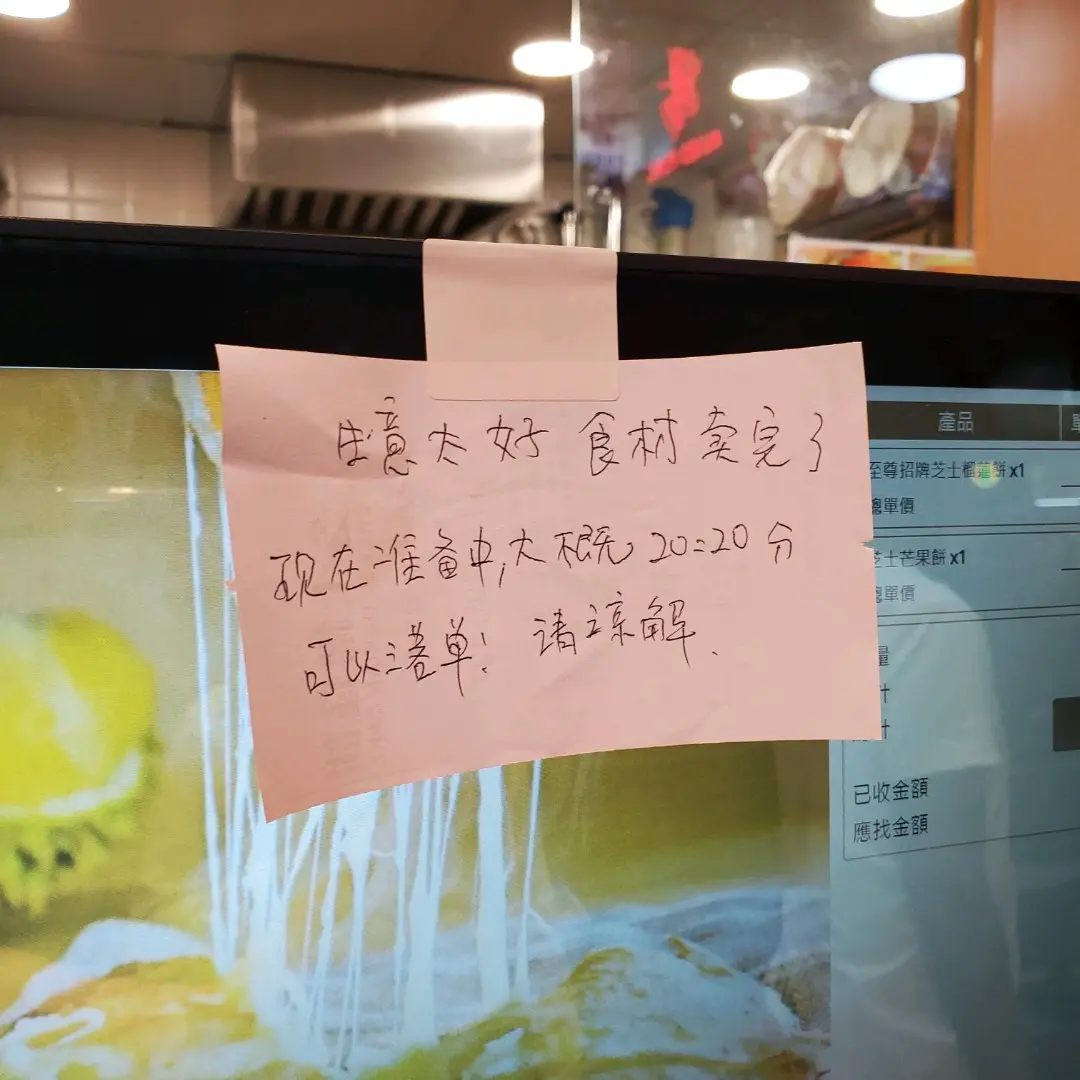 生意太好 食材卖完了
现在准备中,大概20:20分
可以落单! 请谅解.
產品
至尊招牌芝士榴蓮餅 x1
總單價
芝士芒果餅 x1
總單價
量
計
計
已收金額
應找金額